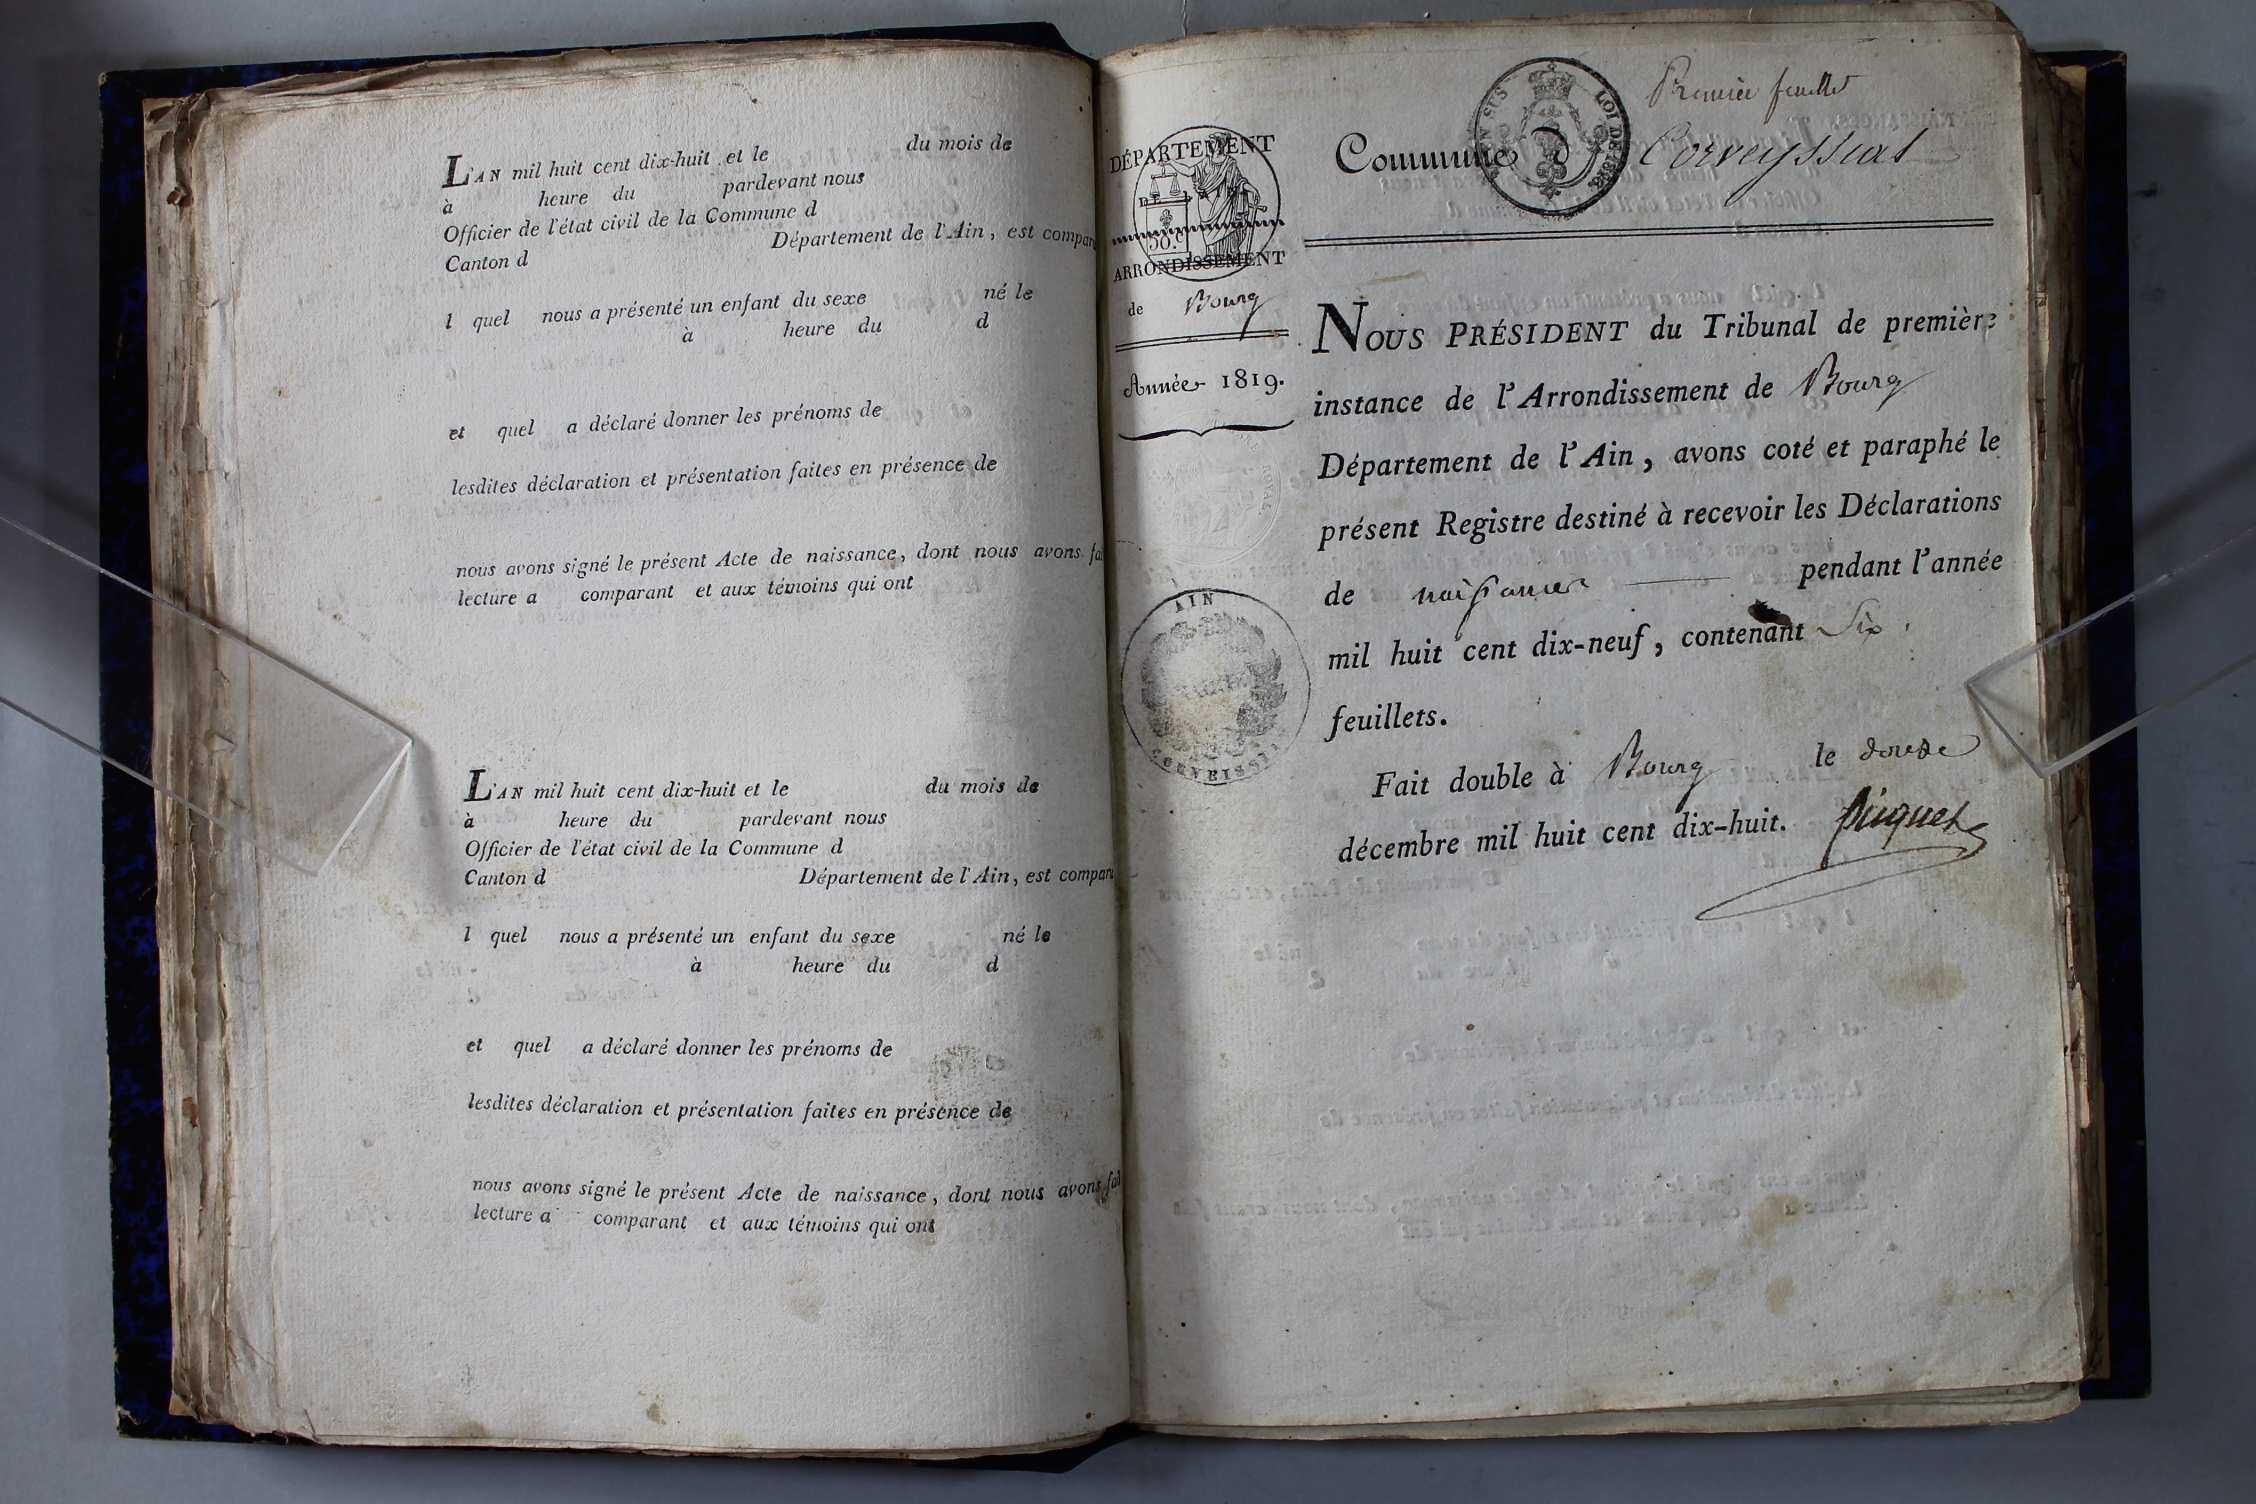 L'AN mil huit cent dix-huit et le du mois de
à heure du pardevant nous
Officier de l'état civil de la Commune d
Canton d Département de l'Ain, est compar
l quel nous a présenté un enfant du sexe né le
à heure du d
et quel a déclaré donner les prénoms de
lesdites déclaration et présentation faites en présence de
nous avons signé le présent Acte de naissance, dont nous avons fai
lecture a comparant et aux témoins qui ont
L'AN mil huit cent dix-huit et le du mois de
à heure du pardevant nous
Officier de l'état civil de la Commune d
Canton d Département de l'Ain, est compar
l quel nous a présenté un enfant du sexe né le
à heure du d
et quel a déclaré donner les prénoms de
lesdites déclaration et présentation faites en présence de
nous avons signé le présent Acte de naissance, dont nous avons fai
lecture a comparant et aux témoins qui ont
DÉPARTEMENT
DE L'AIN
50.c
ARRONDISSEMENT
de Bourg
Année 1819.
ROYAL
AIN
Premier feuillet
EN SUS LOI DE 1816.
Commune d Corveyssiat
NOUS PRÉSIDENT du Tribunal de première
instance de l'Arrondissement de Bourg
Département de l'Ain, avons coté et paraphé le
présent Registre destiné à recevoir les Déclarations
de naissances pendant l'année
mil huit cent dix-neuf, contenant Six
feuillets.
Fait double à Bourg le douze
décembre mil huit cent dix-huit. Piquet